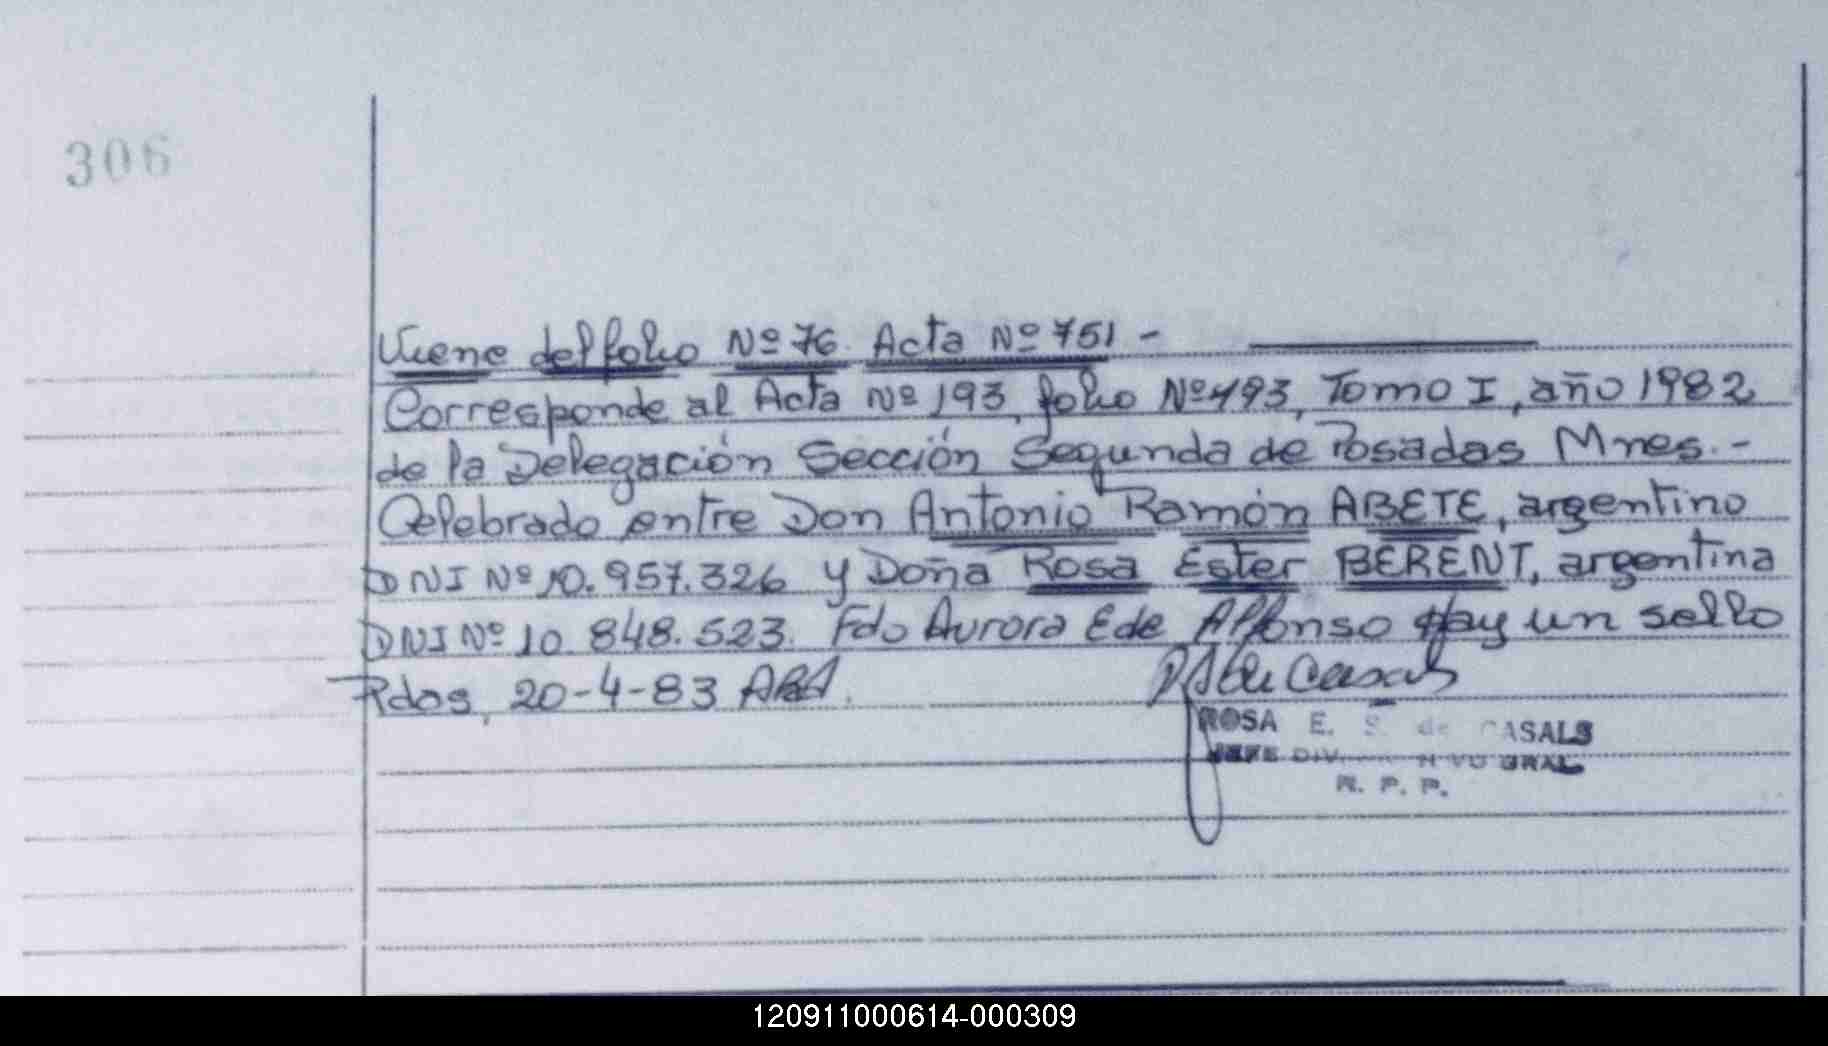 306
Viene del folio Nº 76. Acta Nº 751 -
Corresponde al Acta Nº 193, folio Nº 193, Tomo I, año 1982
de la Delegación Sección Segunda de Posadas Mnes. -
Celebrado entre Don Antonio Ramón ABETE, argentino
DNI Nº 10.957.326 y Doña Rosa Ester BERENT, argentina
DNI Nº 10.848.523. Fdo Aurora E de Alfonso Hay un sello
Pdas, 20-4-83
ROSA E. S. de CASALS
JEFE DIV.
R. P. P.
120911000614-000309